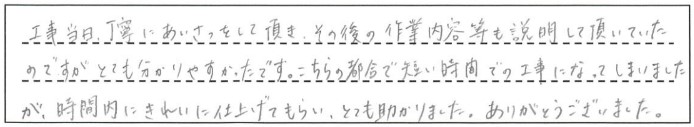 工事当日、丁寧にあいさつをして頂き、その後の作業内容等も説明して頂いていた
のですがとても分かりやすかったです。こちらの都合で短い時間での工事になってしまいました
が、時間内にきれいに仕上げてもらい、とても助かりました。ありがとうございました。